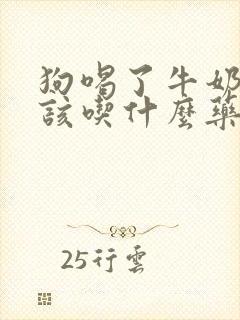 狗喝了牛奶
該喫什麼藥
25行雲